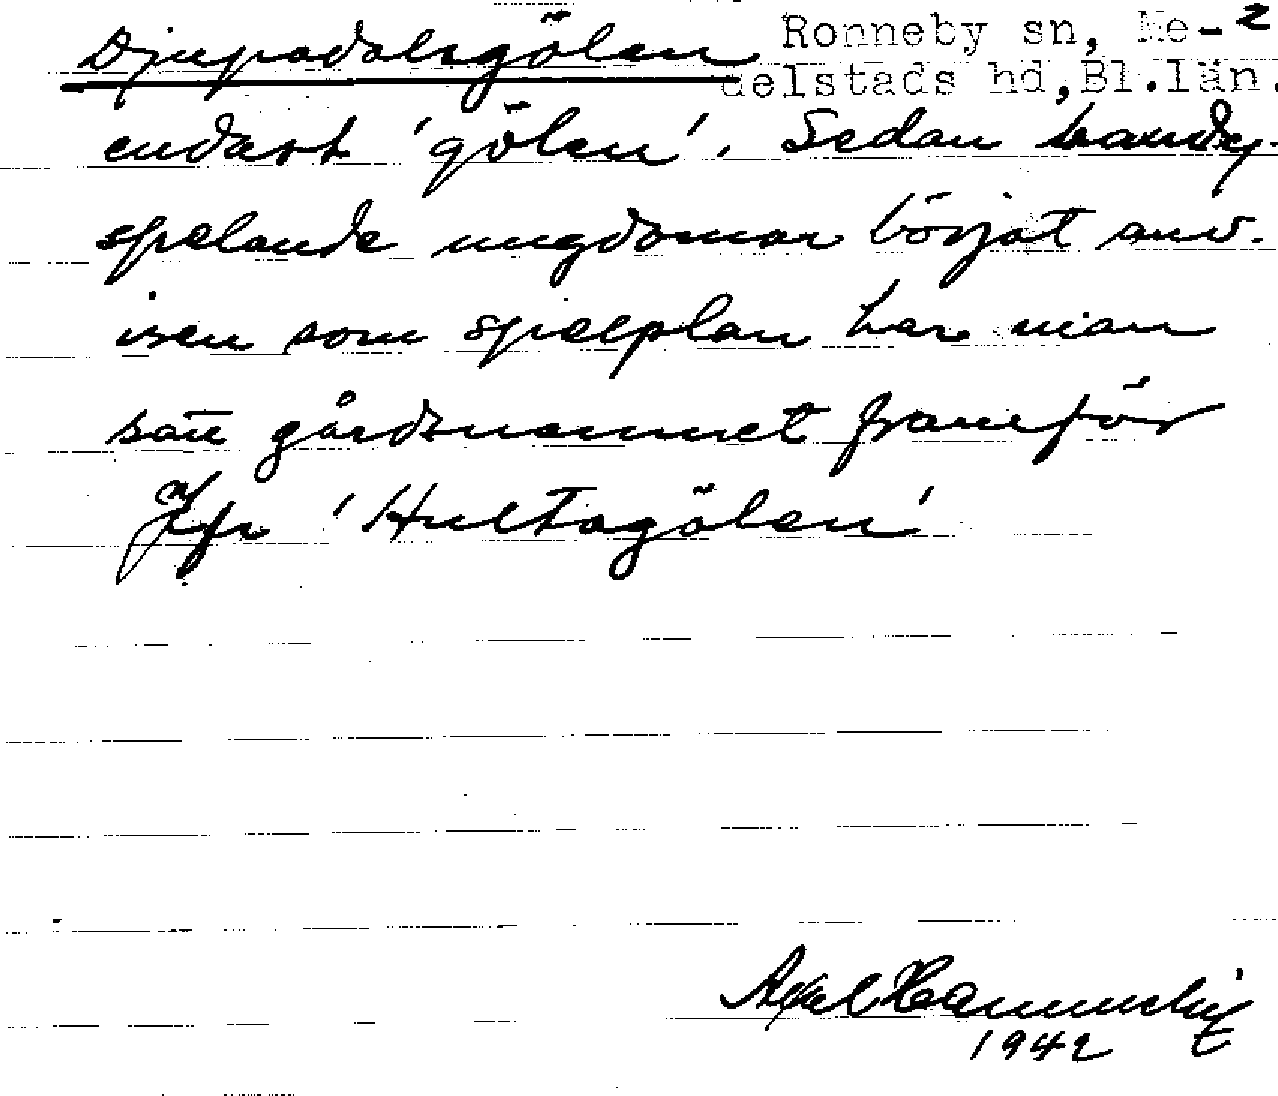 Djupadalsgölen Ronneby sn, Me- 2
delstads hd, Bl. län.
endast 'gölen'. Sedan bandy-
spelande ungdomar börjat anv.
isen som spelplan har man
satt gårdsnamnet framför
Jfr 'Hultagölen'
Axel
1942